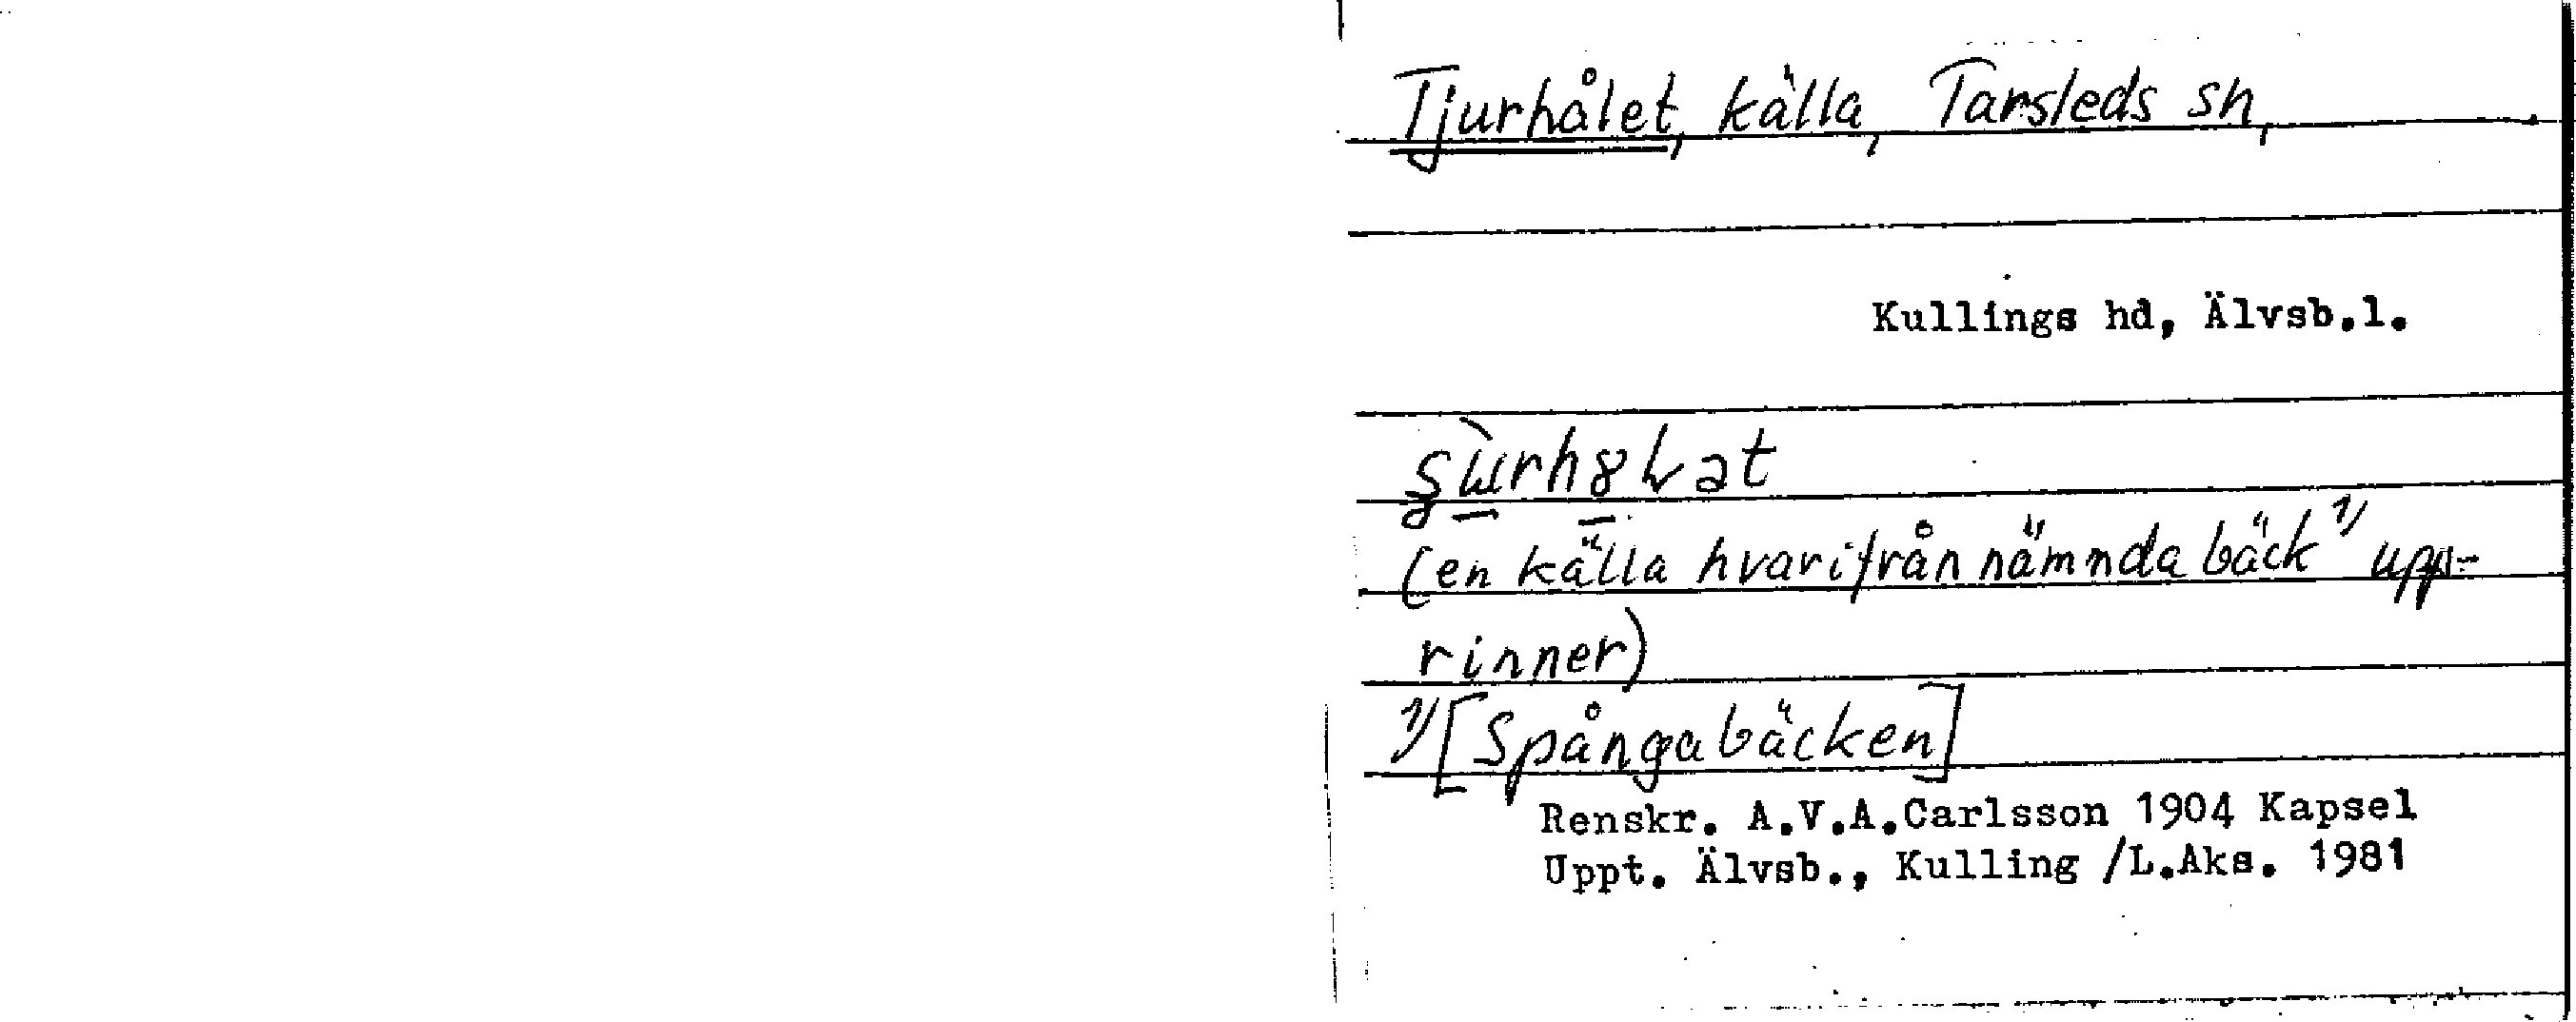 Tjurhålet, källa, Tarsleds sn,
Kullings hd, Älvsb.l.
(en källa hvarifrån nämnda bäck 1) upp-
rinner)
1) [Spångabäcken]
Renskr. A.V.A.Carlsson 1904 Kapsel
Uppt. Älvsb., Kulling /L.Aks. 1981